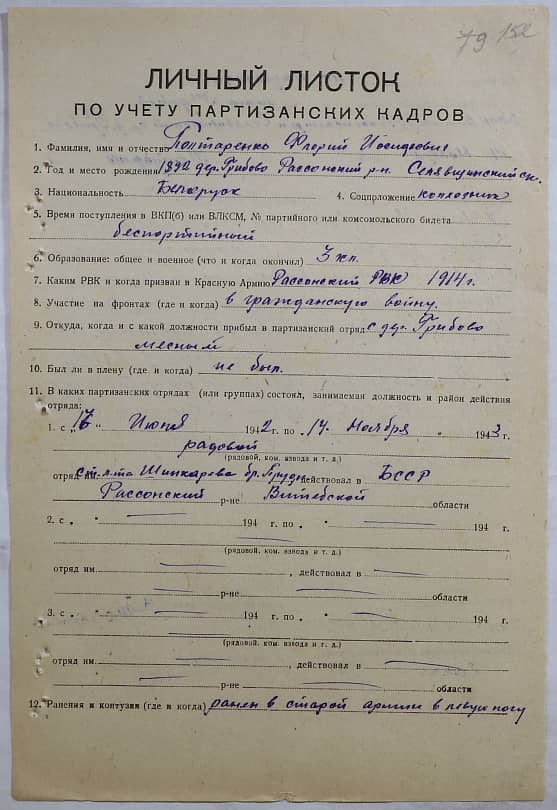 79 152
ЛИЧНЫЙ ЛИСТОК
ПО УЧЕТУ ПАРТИЗАНСКИХ КАДРОВ
1. Фамилия, имя и отчество Поптаренко Иосифович
2. Год и место рождения 1892 дер. Грибово Рассонский р-н.
3. Национальность Беларуск 4. Соцпрложение колхозник
5. Время поступления в ВКП(б) или ВЛКСМ, № партийного или комсомольского билета
беспортийный
6. Образование: общее и военное (что и когда окончил) 3 кл.
7. Каким РВК и когда призван в Красную Армию Рассонский РВК 1914 г.
8. Участие на фронтах (где и когда) в гражданскую войну.
9. Откуда, когда и с какой должности прибыл в партизанский отряд с дер. Грибово
месный
10. Был ли в плену (где и когда) не был.
11. В каких партизанских отрядах (или группах) состоял, занимаемая должность и район действия
отряда:
1. с „ “ Июня 1942 г. по 14. Ноября 1943 г,
радовой
(рядовой, ком. взвода и т. д.)
отряд ст. л-та Шинкарева бр. действовал в БССР
Рассонский р-не Витебской области
2. с „ “ 194 г. по „ “ 194 г.
(рядовой, ком. взвода и т. д.)
отряд им. , действовал в
р-не области
3. с „ “ 194 г. по „ “ 194 г.
(рядовой, ком. взвода и т. д.)
отряд им. , действовал в
р-не области
12. Ранения и контузия (где и когда) ранен в старой армии в левую ногу